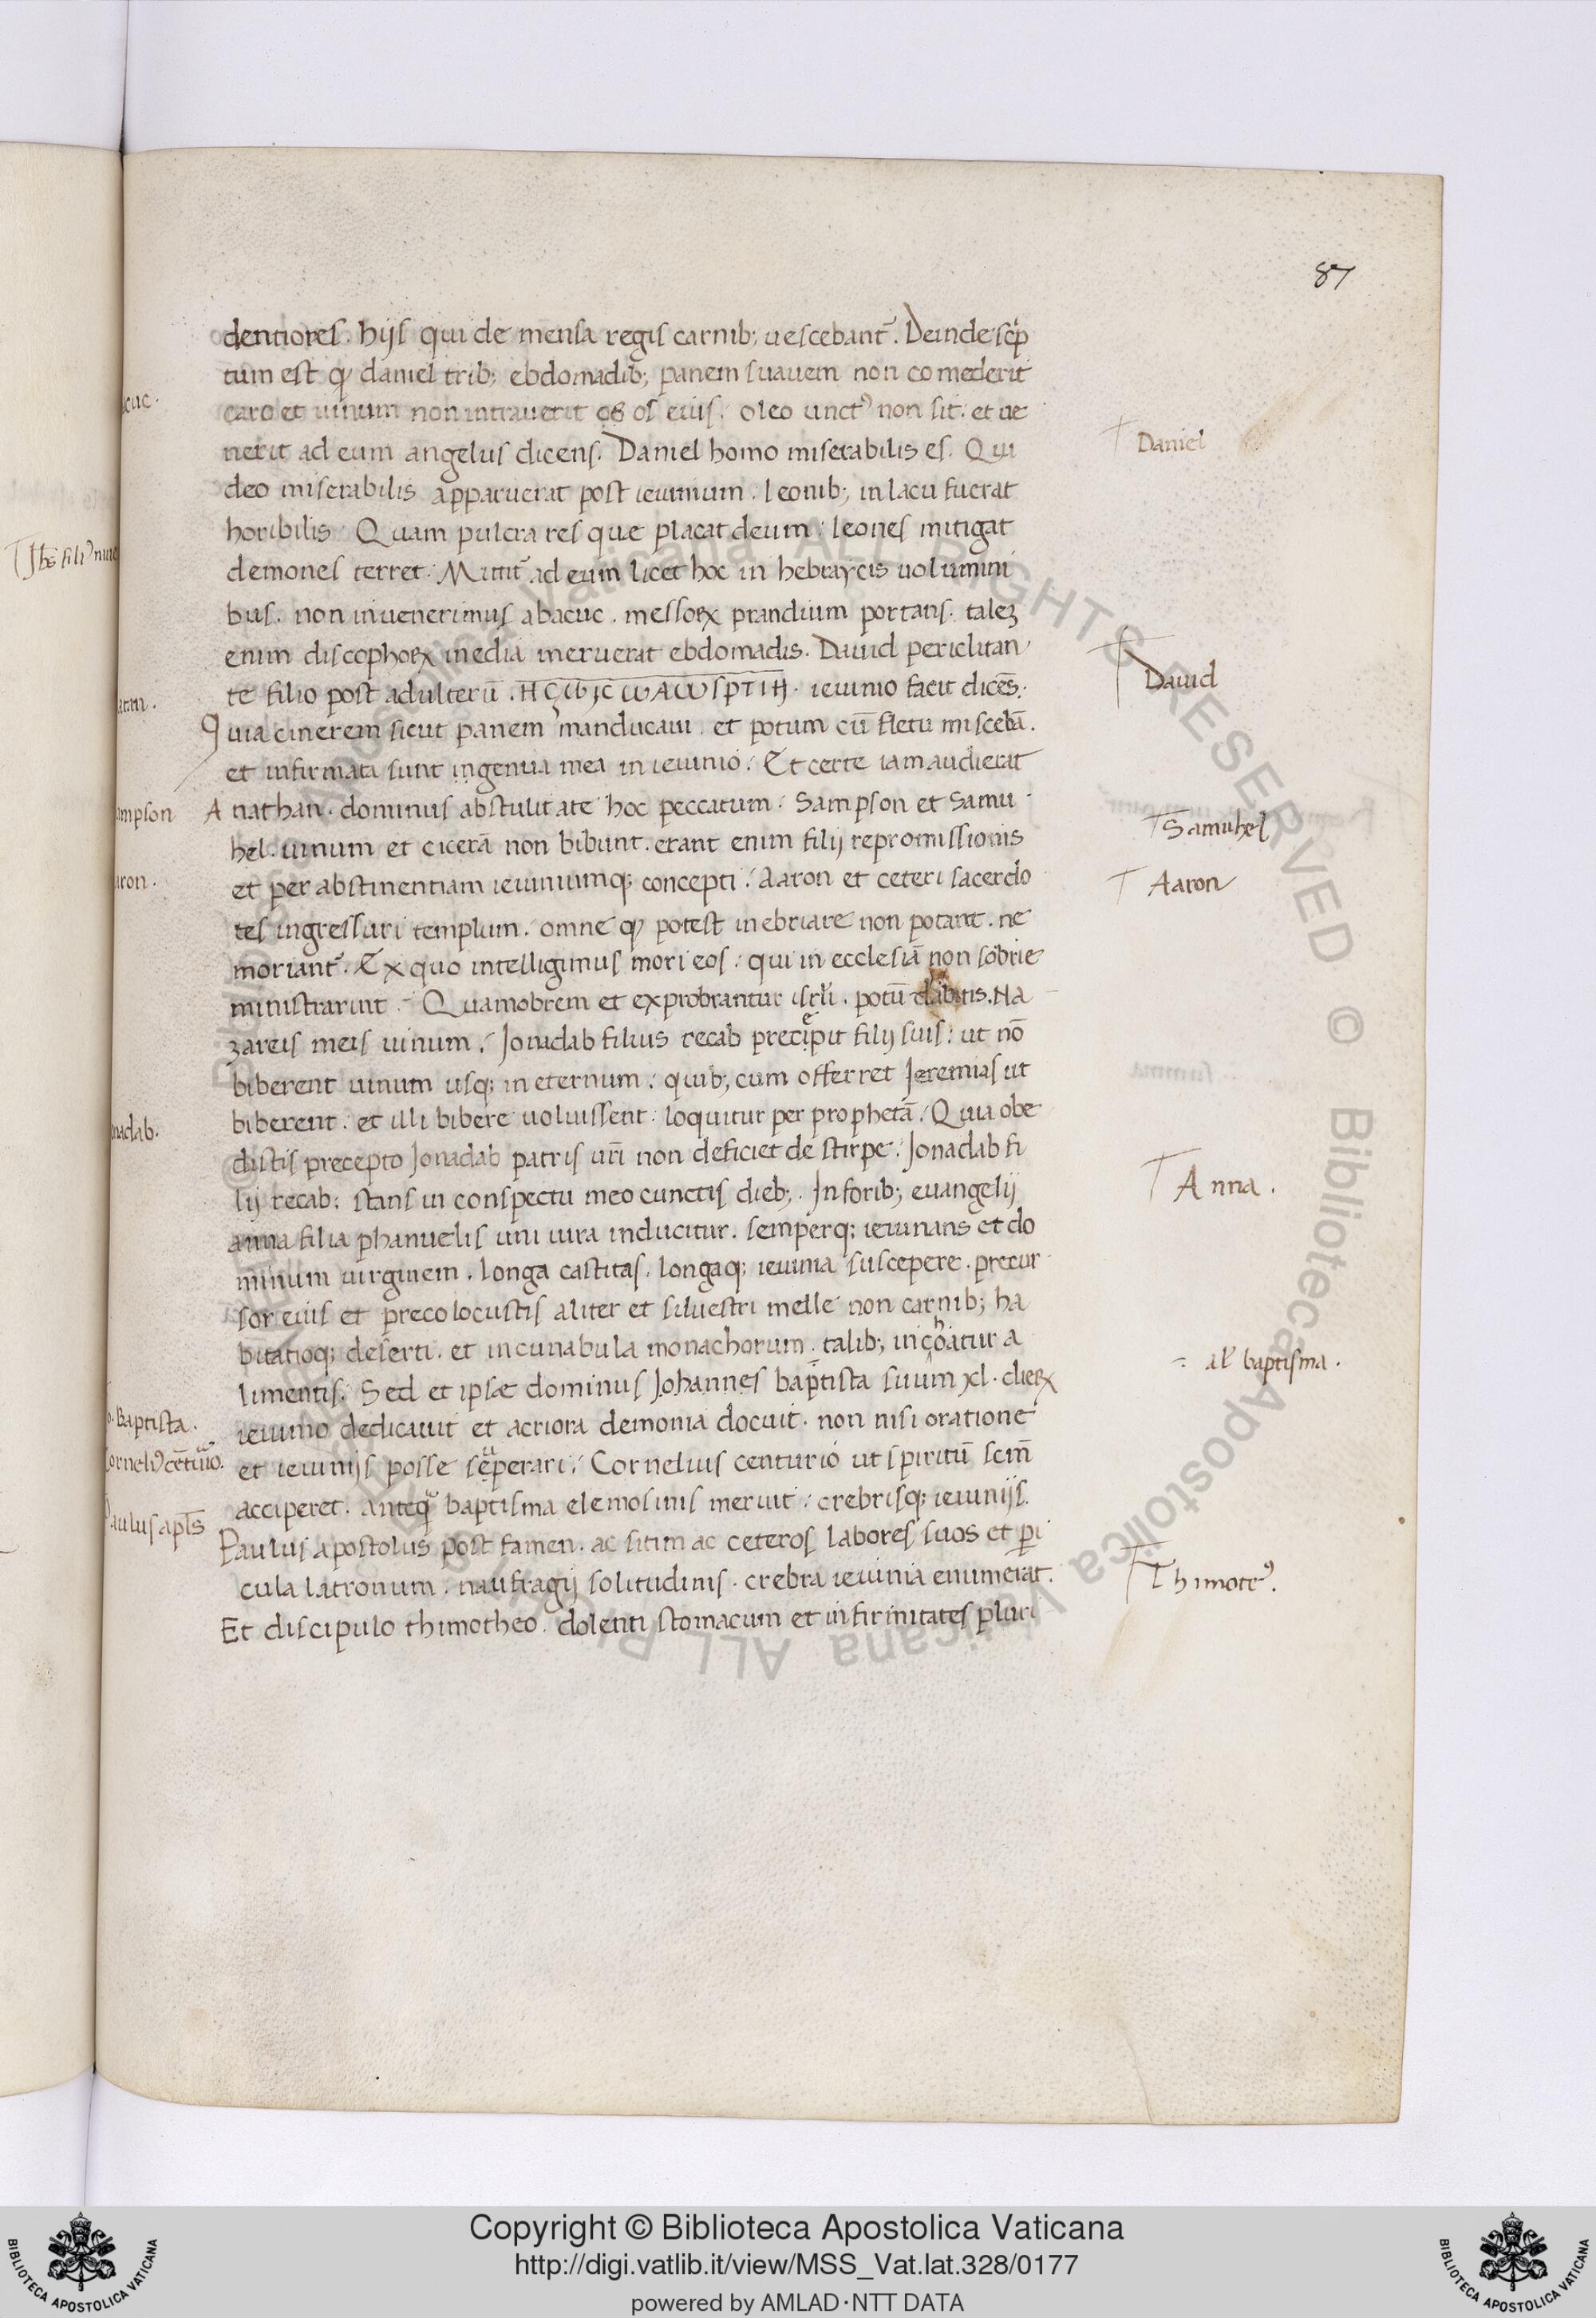 87
dentiores. hijs qui de mensa regis carnib; uescebant̃. Deinde scp̃
tum est qͥ daniel trib; ebdomadib; panem suauem non comederit
caro et uinum non intrauerit os eius. oleo unctꝰ non sit. et ue
nerit ad eum angelus dicens. Daniel homo miserabilis es. Qui
deo miserabilis apparuerat post ieiunium. leonib; in lacu fuerat
horibilis. Quam pulcra res que placat deum. leones mitigat
demones terret. Mittit̃ ad eum licet hoc in hebraycis uolumini
bus. non inuenerimus abacuc. messoꝝ prandium portans. taleʒ
enim discophoꝝ inedia meruerat ebdomadis. Dauid periclitan
te filio post adulteriū. ieiunio facit dicēs.
Quia cinerem sicut panem manducaui. et potum cū fletu miscebā.
et infirmata sunt ingenua mea in ieiunio. Et certe iam audierat
A nathan. dominus abstulit a te hoc peccatum. Sampson et Samu
hel. uinum et cicerā non bibunt. erant enim filij repromissionis
et per abstinentiam ieiuniumq; concepti. Aaron et ceteri sacerdo
tes ingressuri templum. omne qͥ potest inebriare non potant. ne
moriant̃. Ex quo intelligimus mori eos. qui in ecclesiā non sobrie
ministrarint. Quamobrem et exprobrantur isrł. potū dabitis. Na
zareis meis uinum. Jonadab filius recab precepit filij suis. ut nō
biberent uinum usq; in eternum. quib; cum offerret Jeremias ut
biberent. et illi bibere uoluissent. loquitur per prophetā. Quia obe
distis precepto Jonadab patris ur̃i non deficiet de stirpe. Jonadab fi
lij recab. stans in conspectu meo cunctis dieb;. In forib; euangelij
anna filia phanuelis uni uira inducitur. semperq; ieiunans et do
minum uirginem. longa castitas. longaq; ieiunia suscepere. precur
sor eius et preco locustis aliter et siluestri melle non carnib; ha
bitatioq; deserti. et incunabula monachorum. talib; inchoatur a
limentis. Sed et ipse dominus Johannes baptista suum xl. dieꝝ
ieiunio dedicauit et acriora demonia docuit. non nisi oratione
et ieiunijs posse seperari. Cornelius centurio ut spiritū scm̃
acciperet. anteq̃ baptisma elemosinis meruit. crebrisq; ieiunijs.
Paulus apostolus post famen. ac sitim ac ceteros labores suos et ꝑi
cula latronum. naufragij solitudinis. crebra ieiunia enumerat.
Et discipulo thimotheo. dolenti stomacum et infirmitates pluri
Daniel
Dauid
Samuhel
Aaron
Anna.
al' baptisma.
Thimoteꝰ.
cuc.
Jħs filiꝰ
ampson
aron.
onadab.
o. Baptista.
ornelꝰ cētuⁱo.
Paulus apl̃s
Copyright © Biblioteca Apostolica Vaticana
http://digi.vatlib.it/view/MSS_Vat.lat.328/0177
powered by AMLAD·NTT DATA
BIBLIOTECA APOSTOLICA VATICANA
BIBLIOTECA APOSTOLICA VATICANA